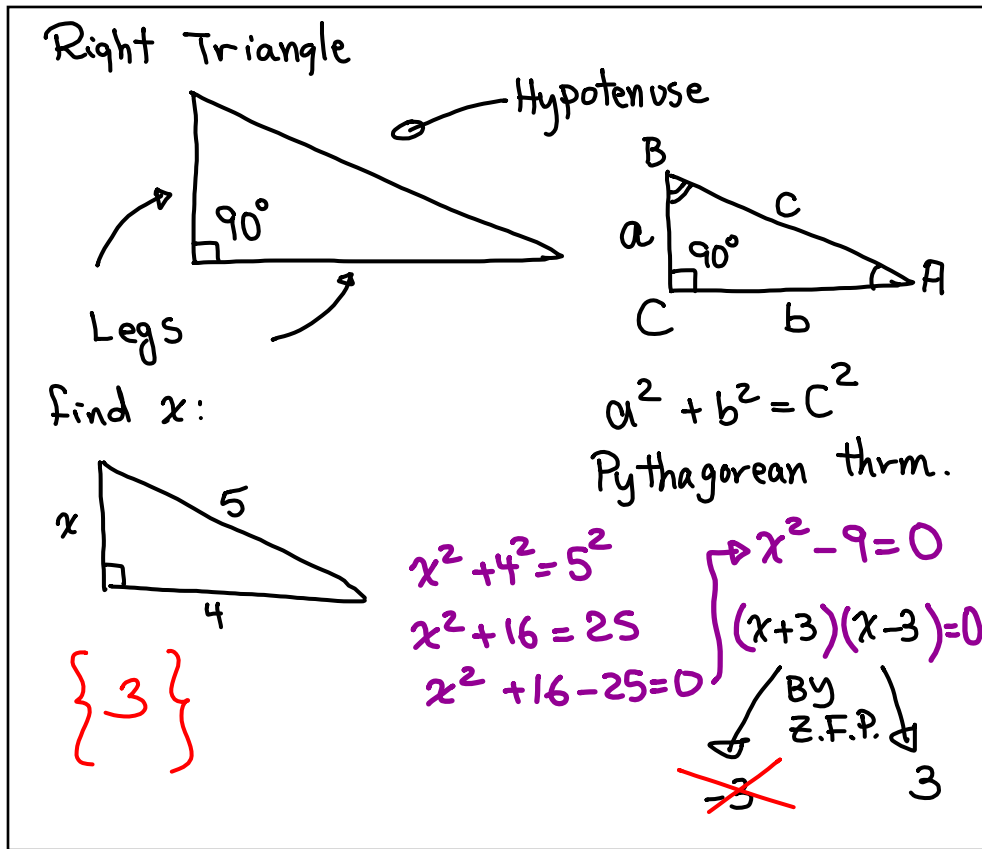 Right Triangle
Hypotenuse
90°
Legs
B
a
c
90°
C
b
A
a² + b² = C²
Pythagorean thrm.
find x:
x
5
4
{3}
x² + 4² = 5²
x² + 16 = 25
x² + 16 - 25 = 0
x² - 9 = 0
(x+3)(x-3)=0
By
Z.F.P.
-3
3